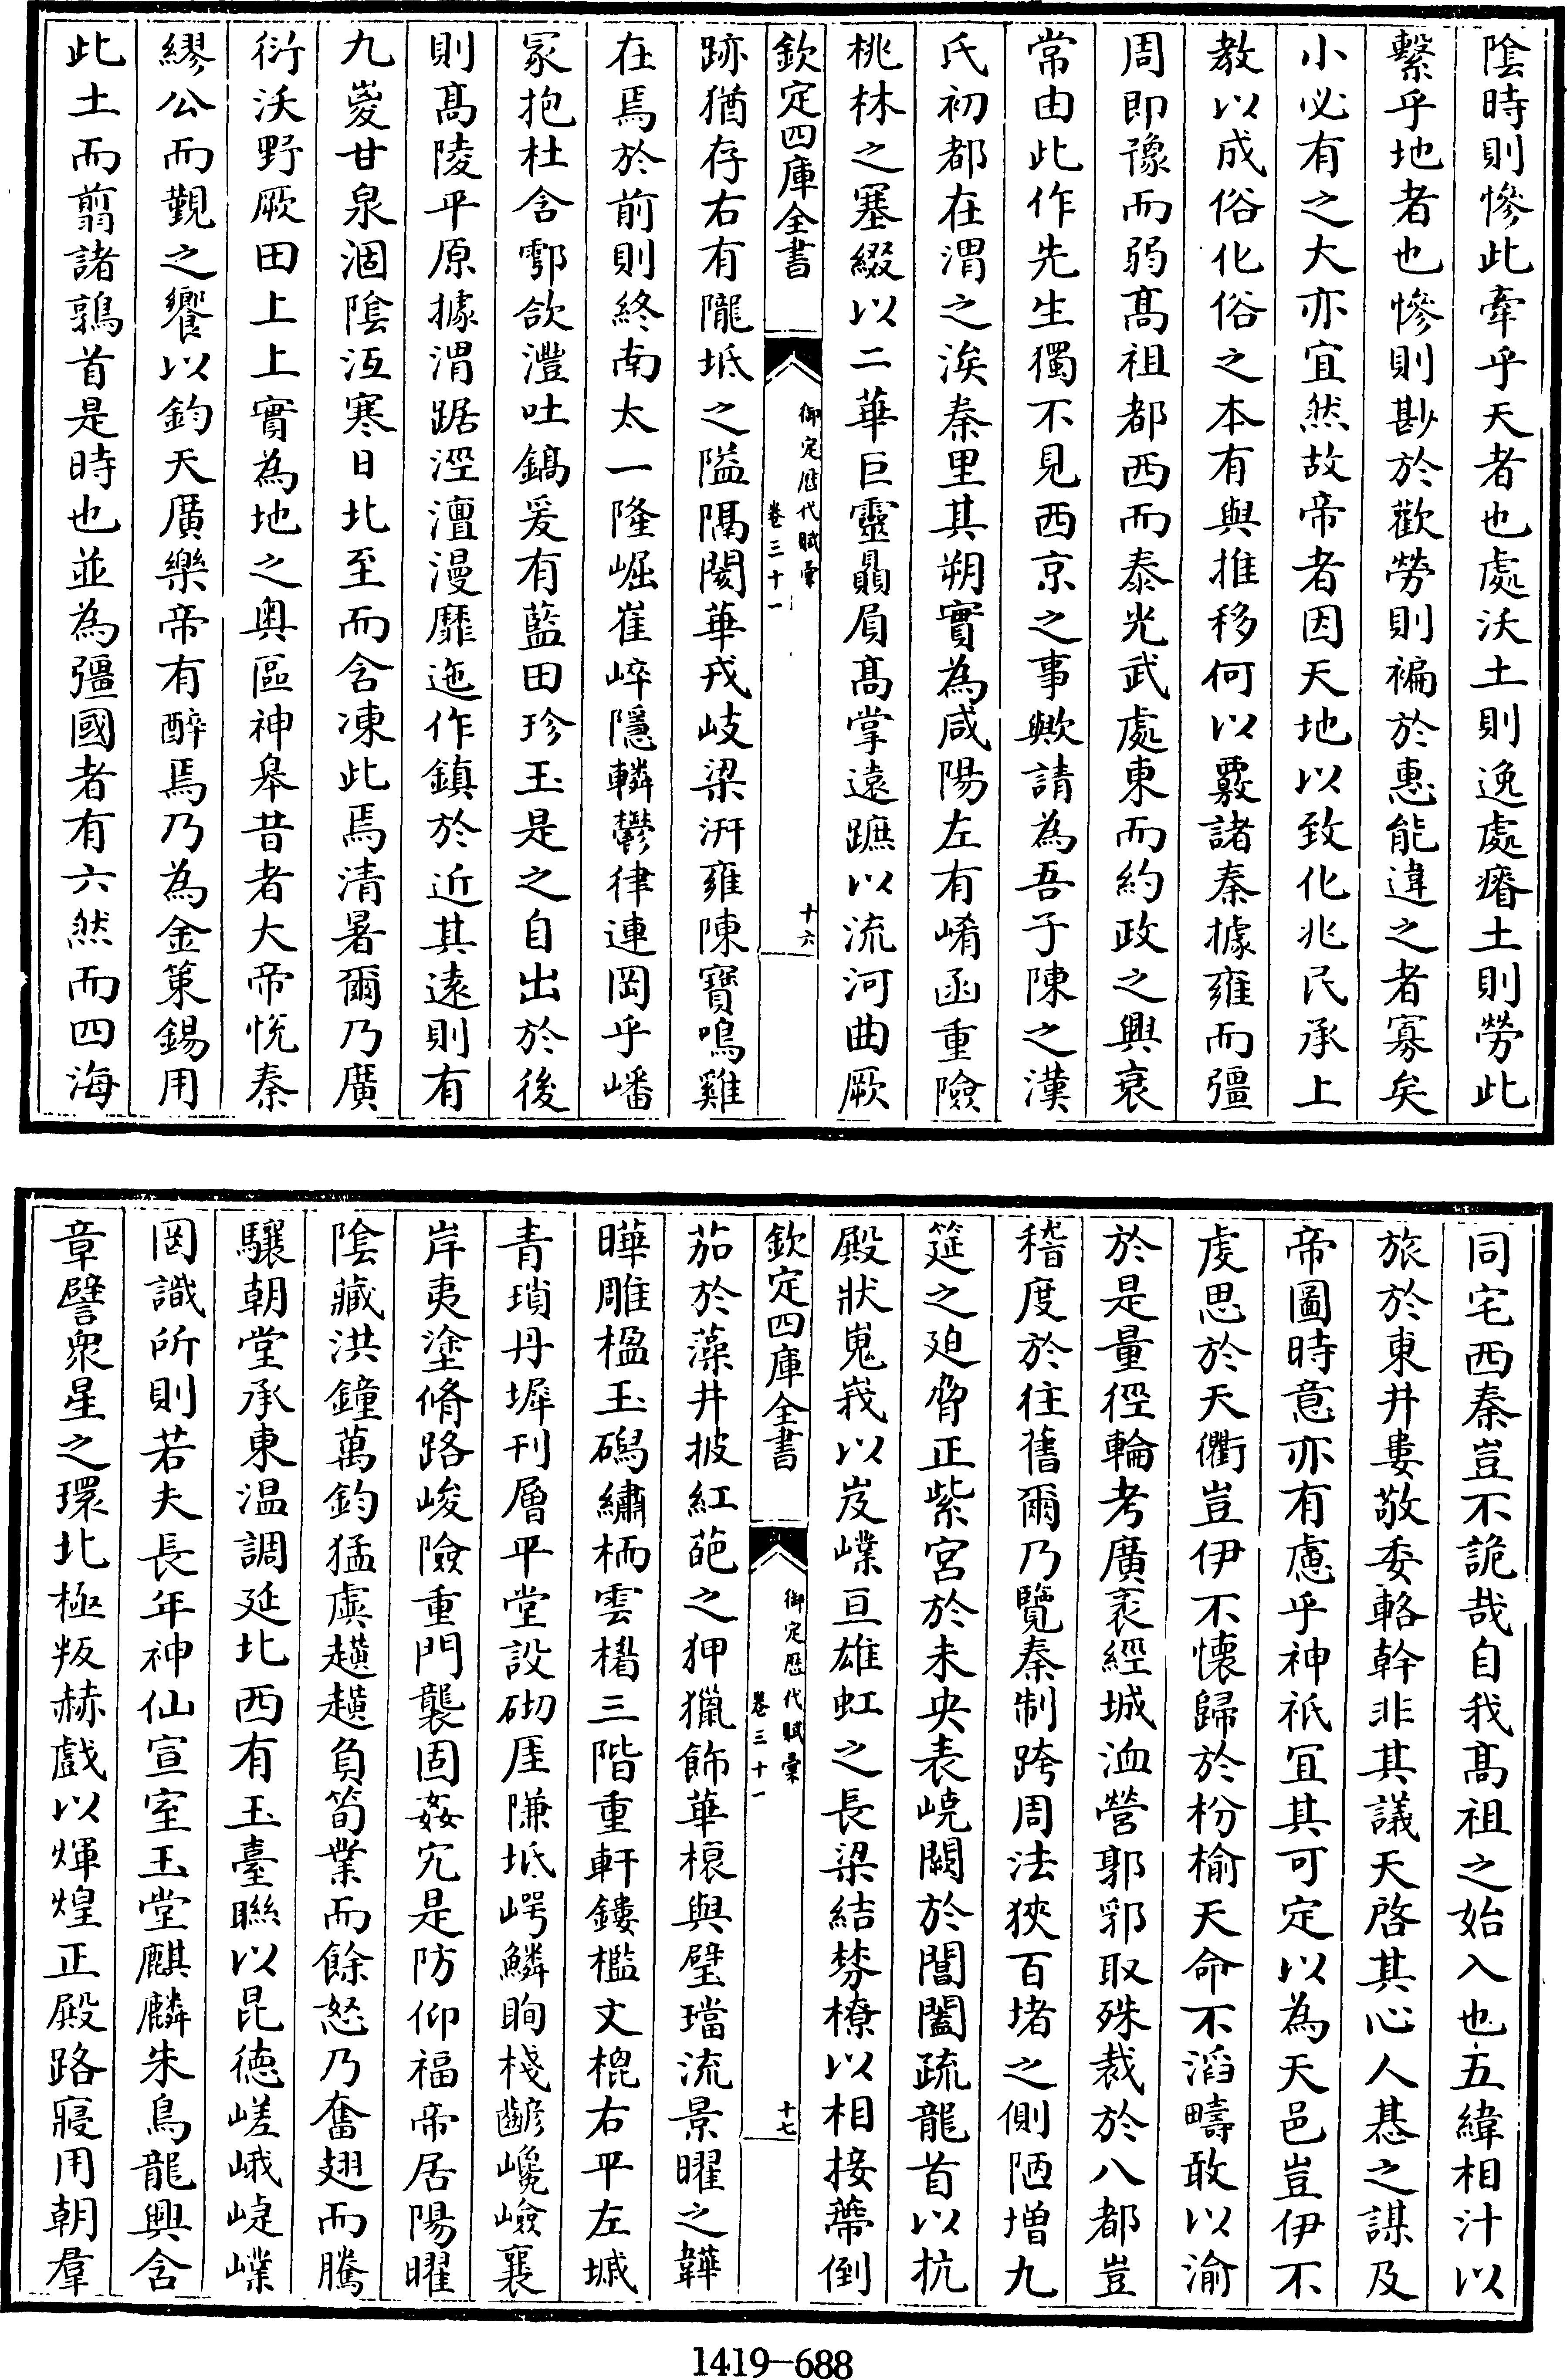 陰時則慘此牽乎天者也處沃土則逸處瘠土則勞此
繫乎地者也慘則尠於歡勞則褊於惠能違之者寡矣
小必有之大亦宜然故帝者因天地以致化兆民承上
教以成俗化俗之本有與推移何以覈諸秦據雍而彊
周即豫而弱髙祖都西而泰光武處東而約政之興衰
常由此作先生獨不見西京之事歟請為吾子陳之漢
氏初都在渭之涘秦里其朔實為咸陽左有崤函重險
桃林之塞綴以二華巨靈贔屓髙掌遠蹠以流河曲厥
欽定四庫全書
御定歴代賦彚
卷三十一
十六
跡猶存右有隴坻之隘隔閡華戎岐梁汧雍陳寶鳴雞
在焉於前則終南太一隆崛崔崒隱轔鬱律連岡乎嶓
冢抱杜含鄠欱灃吐鎬爰有藍田珍玉是之自出於後
則髙陵平原據渭踞涇澶漫靡迤作鎮於近其遠則有
九嵏甘泉涸陰沍寒日北至而含凍此焉清暑爾乃廣
衍沃野厥田上上實為地之奥區神臯昔者大帝悅秦
繆公而覲之饗以鈞天廣樂帝有醉焉乃為金䇿錫用
此土而翦諸鶉首是時也並為彊國者有六然而四海
同宅西秦豈不詭哉自我髙祖之始入也五緯相汁以
旅於東井婁敬委輅幹非其議天啓其心人惎之謀及
帝圖時意亦有慮乎神祇宜其可定以為天邑豈伊不
虔思於天衢豈伊不懷歸於枌榆天命不滔疇敢以渝
於是量徑輪考廣袤經城洫營郭郛取殊裁於八都豈
稽度於往舊爾乃覽秦制跨周法狹百堵之側陋增九
筵之迫脅正紫宮於未央表嶢闕於閶闔疏龍首以抗
殿狀嵬峩以岌嶪亘雄虹之長梁結棼橑以相接蔕倒
欽定四庫全書
御定歴代賦彚
卷三十一
十七
茄於藻井披紅葩之狎獵飾華榱與璧璫流景曜之韡
曄雕楹玉碣繡栭雲楣三階重軒鏤檻文㮰右平左墄
青瑣丹墀刋層平堂設砌厓隒坻崿鱗眴棧齴巉嶮襄
岸夷塗脩路峻險重門襲固姦宄是防仰福帝居陽曜
陰藏洪鐘萬鈞猛虡趪趪負筍業而餘怒乃奮翅而騰
驤朝堂承東温調延北西有玉臺聯以昆徳嵯峨崨嶪
罔識所則若夫長年神仙宣室玉堂麒麟朱鳥龍興含
章譬衆星之環北極叛赫戲以煇煌正殿路寢用朝羣
1419-688